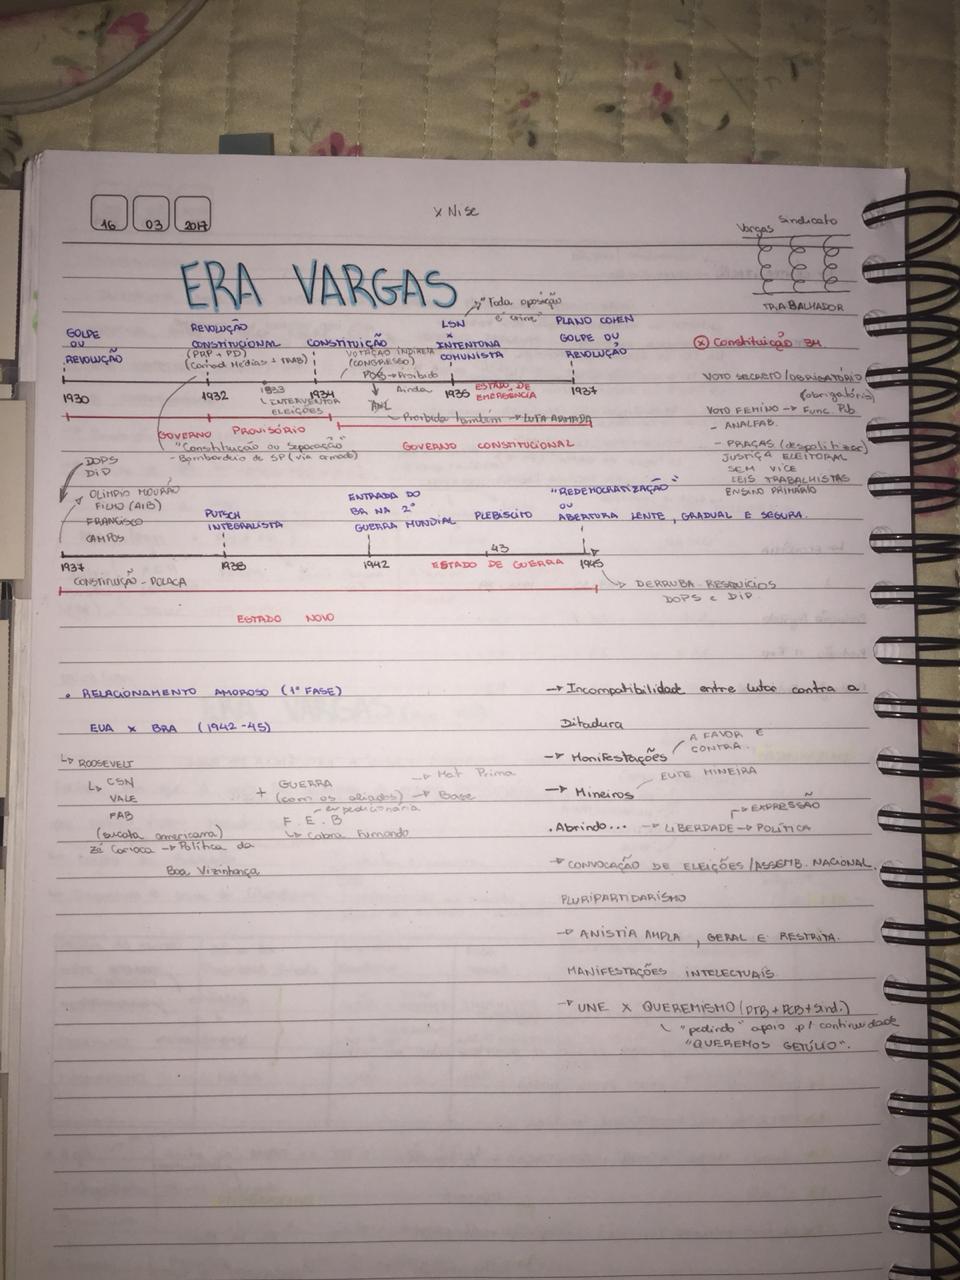 16 03 2017
x Nise
Vargas Sindicato
TRABALHADOR
ERA VARGAS
"Toda oposição
é crime"
GOLPE
OU
REVOLUÇÃO
REVOLUÇÃO
CONSTITUCIONAL
(PRP + PD)
CONSTITUIÇÃO
VOTAÇÃO INDIRETA
(CONGRESSO)
PCB → Proibido
Ainda
ANL
LSN
x
INTENTONA
COMUNISTA
PLANO COHEN
GOLPE OU
REVOLUÇÃO
1930 1932 1933 1934 1935 1937
INTERVENTOR
ELEIÇÕES
ESTADO DE
EMERGÊNCIA
Proibida também → LUTA ARMADA
GOVERNO PROVISÓRIO
GOVERNO CONSTITUCIONAL
"Constituição ou Separação"
- Bombardeio de SP (via armada)
x Constituição 34
VOTO SECRETO/OBRIGATÓRIO
(obrigatório)
VOTO FEMINO → Func. Pub
- ANALFAB.
- PRAÇAS (despolitizar)
JUSTIÇA ELEITORAL
SEM VICE
LEIS TRABALHISTAS
ENSINO PRIMÁRIO
DOPS
DIP
OLIMPIO MOURÃO
FILHO (AIB)
FRANCISCO
CAMPOS
PUTSCH
INTEGRALISTA
ENTRADA DO
BR NA 2ª
GUERRA MUNDIAL
PLEBISCITO
"REDEMOCRATIZAÇÃO"
OU
ABERTURA LENTE, GRADUAL E SEGURA.
1937 1938 1942 43 1945
CONSTITUIÇÃO - POLACA
ESTADO DE GUERRA
DERRUBA RESQUÍCIOS
DOPS e DIP
ESTADO NOVO
• RELACIONAMENTO AMOROSO (1ª FASE)
EUA x BRA (1942-45)
↳ ROOSEVELT
↳ CSN
VALE
FAB
(sucata americana)
Zé Carioca → Política da
Boa Vizinhança
+ GUERRA
(com os aliados)
→ Mat Prima
→ Base
expedicionária
F.E.B
↳ Cobra Fumando
→ Incompatibilidade entre lutar contra a
Ditadura
→ Manifestações
A FAVOR E
CONTRA.
→ Mineiros
ELITE MINEIRA
• Abrindo... → LIBERDADE → POLÍTICA
→ EXPRESSÃO
→ CONVOCAÇÃO DE ELEIÇÕES/ASSEMB. NACIONAL.
PLURIPARTIDARISMO
→ ANISTIA AMPLA, GERAL E RESTRITA.
MANIFESTAÇÕES INTELECTUAIS
→ UNE X QUEREMISMO (PTB + PCB + Sind.)
↳ "pedindo" apoio p/ continuidade
"QUEREMOS GETÚLIO".